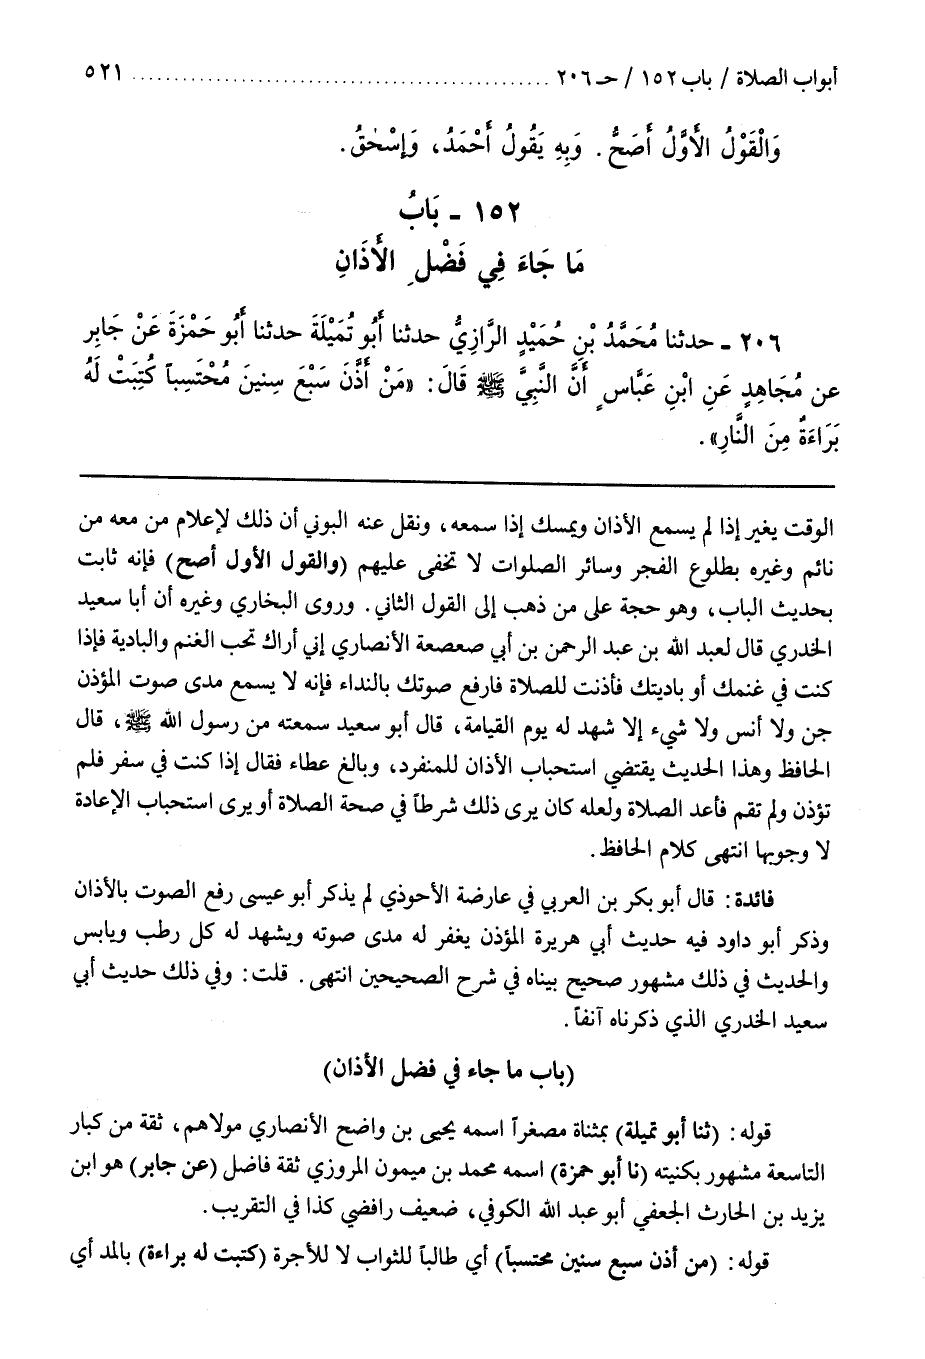 أبواب الصلاة / باب ١٥٢ / حـ ٢٠٦ .................................................. ٥٢١
وَالْقَوْلُ الْأَوَّلُ أَصَحُّ. وَبِهِ يَقُولُ أَحْمَدُ، وَإِسْحٰقُ.
١٥٢ ـ بَابُ
مَا جَاءَ فِي فَضْلِ الْأَذَانِ
٢٠٦ ـ حدثنا مُحَمَّدُ بْنِ حُمَيْدٍ الرَّازِيُّ حدثنا أَبُو تُمَيْلَةَ حدثنا أَبُو حَمْزَةَ عَنْ جَابِر
عن مُجَاهِدٍ عَنِ ابْنِ عَبَّاسٍ أَنَّ النَّبِيَّ ﷺ قَالَ: «مَنْ أَذَّنَ سَبْعَ سِنِينَ مُحْتَسِباً كُتِبَتْ لَهُ
بَرَاءَةٌ مِنَ النَّارِ».
الوقت يغير إذا لم يسمع الأذان ويمسك إذا سمعه، ونقل عنه البوني أن ذلك لإعلام من معه من
نائم وغيره بطلوع الفجر وسائر الصلوات لا تخفى عليهم (والقول الأول أصح) فإنه ثابت
بحديث الباب، وهو حجة على من ذهب إلى القول الثاني. وروى البخاري وغيره أن أبا سعيد
الخدري قال لعبد الله بن عبد الرحمن بن أبي صعصعة الأنصاري إني أراك تحب الغنم والبادية فإذا
كنت في غنمك أو باديتك فأذنت للصلاة فارفع صوتك بالنداء فإنه لا يسمع مدى صوت المؤذن
جن ولا أنس ولا شيء إلا شهد له يوم القيامة، قال أبو سعيد سمعته من رسول الله ﷺ، قال
الحافظ وهذا الحديث يقتضي استحباب الأذان للمنفرد، وبالغ عطاء فقال إذا كنت في سفر فلم
تؤذن ولم تقم فأعد الصلاة ولعله كان يرى ذلك شرطاً في صحة الصلاة أو يرى استحباب الإعادة
لا وجوبها انتهى كلام الحافظ.
فائدة: قال أبو بكر بن العربي في عارضة الأحوذي لم يذكر أبو عيسى رفع الصوت بالأذان
وذكر أبو داود فيه حديث أبي هريرة المؤذن يغفر له مدى صوته ويشهد له كل رطب ويابس
والحديث في ذلك مشهور صحيح بيناه في شرح الصحيحين انتهى. قلت: وفي ذلك حديث أبي
سعيد الخدري الذي ذكرناه آنفاً.
(باب ما جاء في فضل الأذان)
قوله: (ثنا أبو تميلة) بمثناة مصغراً اسمه يحيى بن واضح الأنصاري مولاهم، ثقة من كبار
التاسعة مشهور بكنيته (نا أبو حمزة) اسمه محمد بن ميمون المروزي ثقة فاضل (عن جابر) هو ابن
يزيد بن الحارث الجعفي أبو عبد الله الكوفي، ضعيف رافضي كذا في التقريب.
قوله: (من أذن سبع سنين محتسباً) أي طالباً للثواب لا للأجرة (كتبت له براءة) بالمد أي